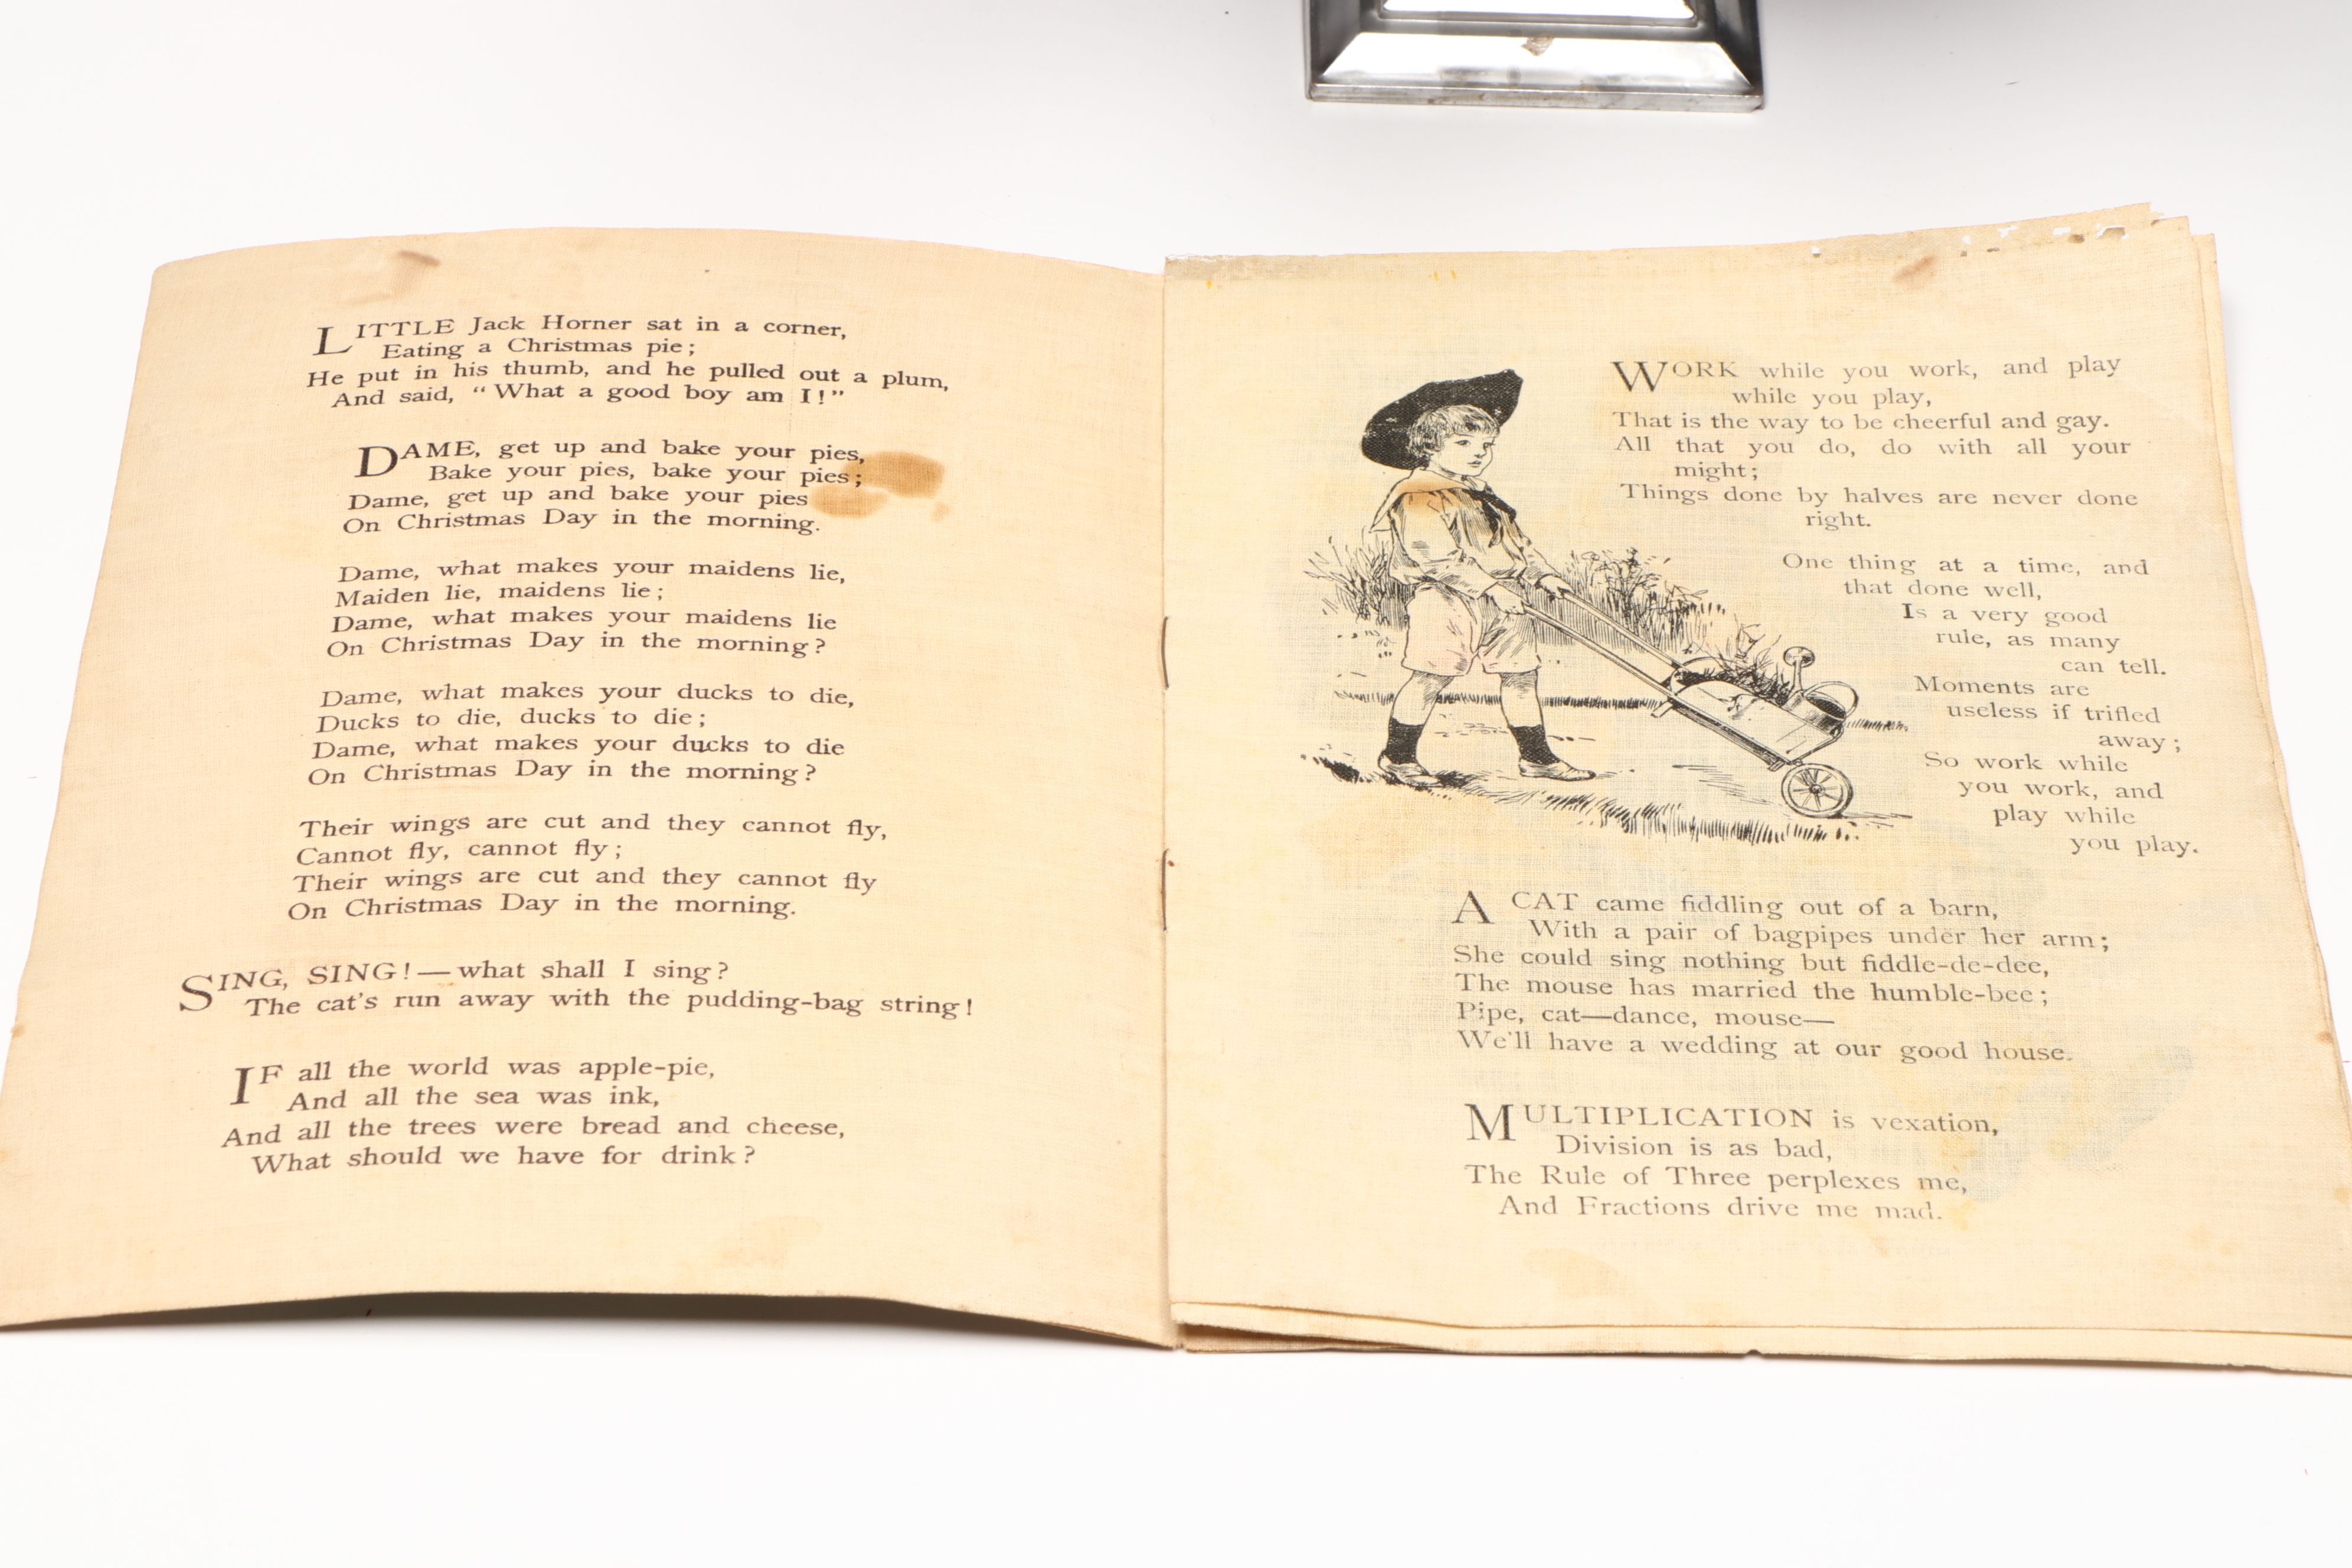 LITTLE Jack Horner sat in a corner,
Eating a Christmas pie;
He put in his thumb, and he pulled out a plum,
And said, "What a good boy am I!"
DAME, get up and bake your pies,
Bake your pies, bake your pies;
Dame, get up and bake your pies
On Christmas Day in the morning.
Dame, what makes your maidens lie,
Maiden lie, maidens lie;
Dame, what makes your maidens lie
On Christmas Day in the morning?
Dame, what makes your ducks to die,
Ducks to die, ducks to die;
Dame, what makes your ducks to die
On Christmas Day in the morning?
Their wings are cut and they cannot fly,
Cannot fly, cannot fly;
Their wings are cut and they cannot fly
On Christmas Day in the morning.
SING, SING!—what shall I sing?
The cat's run away with the pudding-bag string!
IF all the world was apple-pie,
And all the sea was ink,
And all the trees were bread and cheese,
What should we have for drink?
WORK while you work, and play
while you play,
That is the way to be cheerful and gay.
All that you do, do with all your
might;
Things done by halves are never done
right.
One thing at a time, and
that done well,
Is a very good
rule, as many
can tell.
Moments are
useless if trifled
away;
So work while
you work, and
play while
you play.
A CAT came fiddling out of a barn,
With a pair of bagpipes under her arm;
She could sing nothing but fiddle-de-dee,
The mouse has married the humble-bee;
Pipe, cat—dance, mouse—
We'll have a wedding at our good house.
MULTIPLICATION is vexation,
Division is as bad,
The Rule of Three perplexes me,
And Fractions drive me mad.